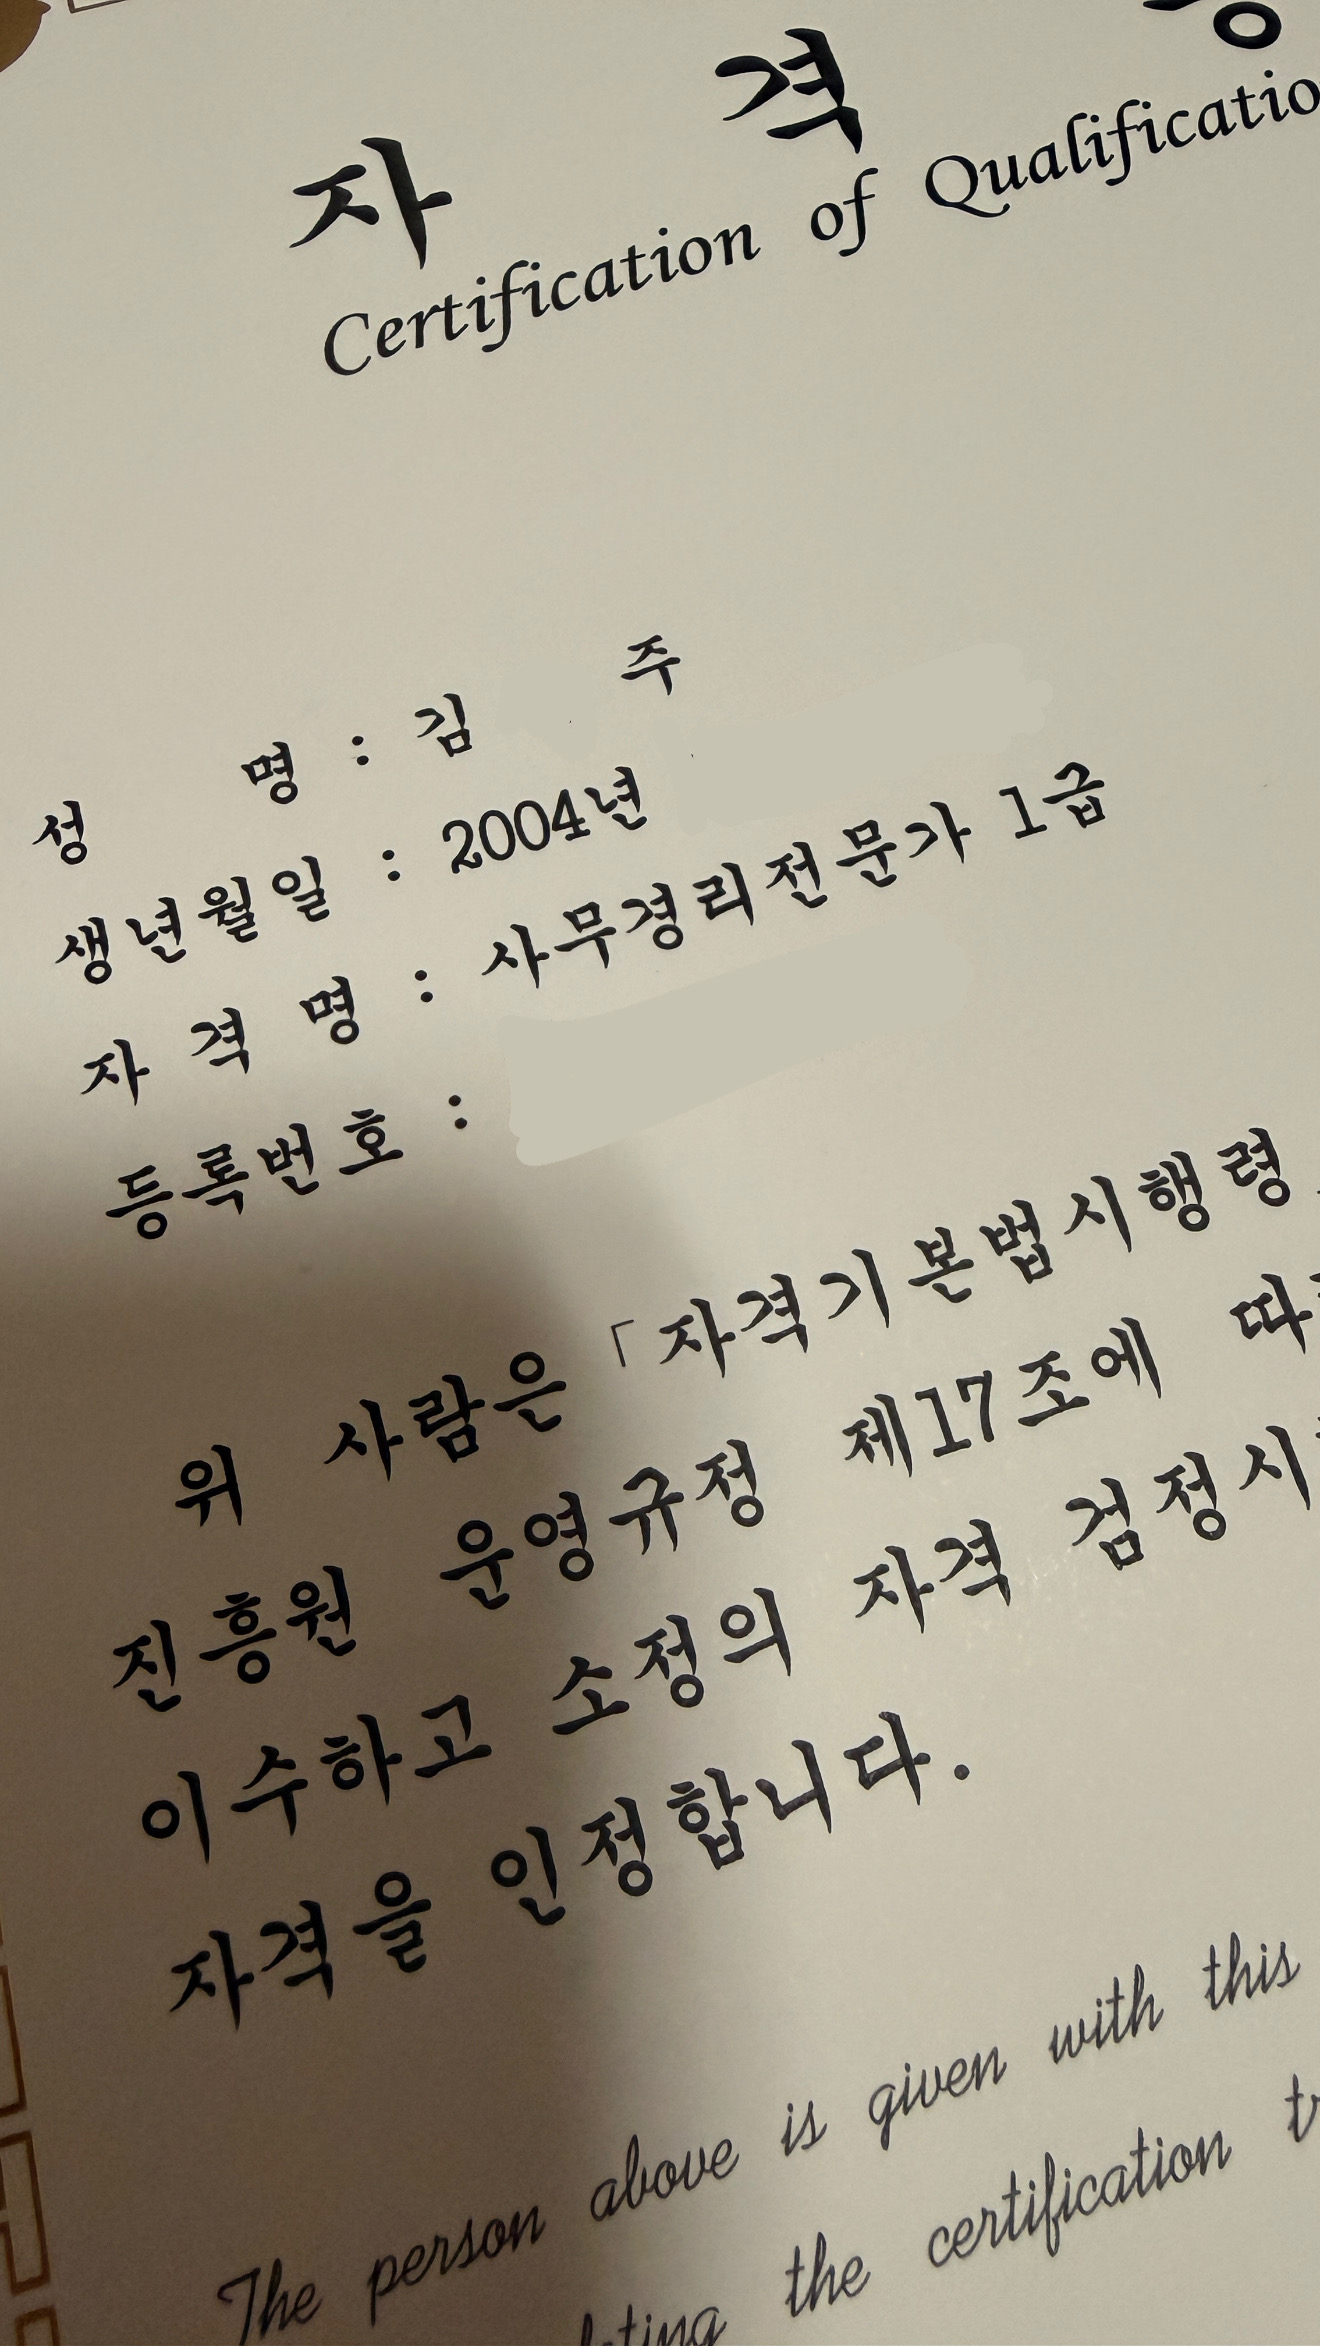 자 격
Certification of Qualificatio
성 명 : 김 주
생년월일 : 2004년
자 격 명 : 사무경리전문가 1급
등록번호 :
위 사람은 「자격기본법시행령
진흥원 운영규정 제17조에
이수하고 소정의 자격 검정시
자격을 인정합니다.
The person above is given with this
the certification